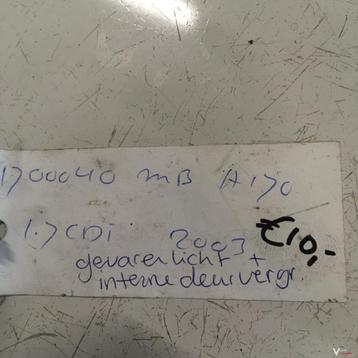 1700040 MB A170
1.7 CDi 2003 €10,-
gevarenlicht +
interne deurvergr.